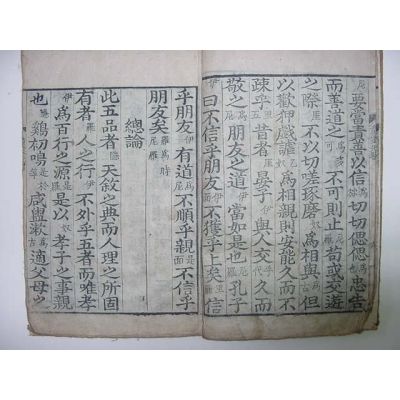 尼要當責善以信切切偲偲忠告
而善道之不可則止尼羅苟或交遊
之際厓不以切嗟琢磨奴爲相與古但
以歡狎戱謔爲相親則安能久而不
疎乎昔者晏子伊與人交久而
敬之爲尼朋友之道伊當如是也尼羅孔子
曰不信乎朋友面不獲乎上矣信
乎朋友伊有道爲尼不順乎親面不信乎
朋友矣
總論
此五品者隱天敍之典而人理之所固
有者羅人之行伊不外乎五者而唯孝
伊爲百行之源羅是以奴孝子之事親
也隱鷄初鳴咸盥漱爲古適父母之